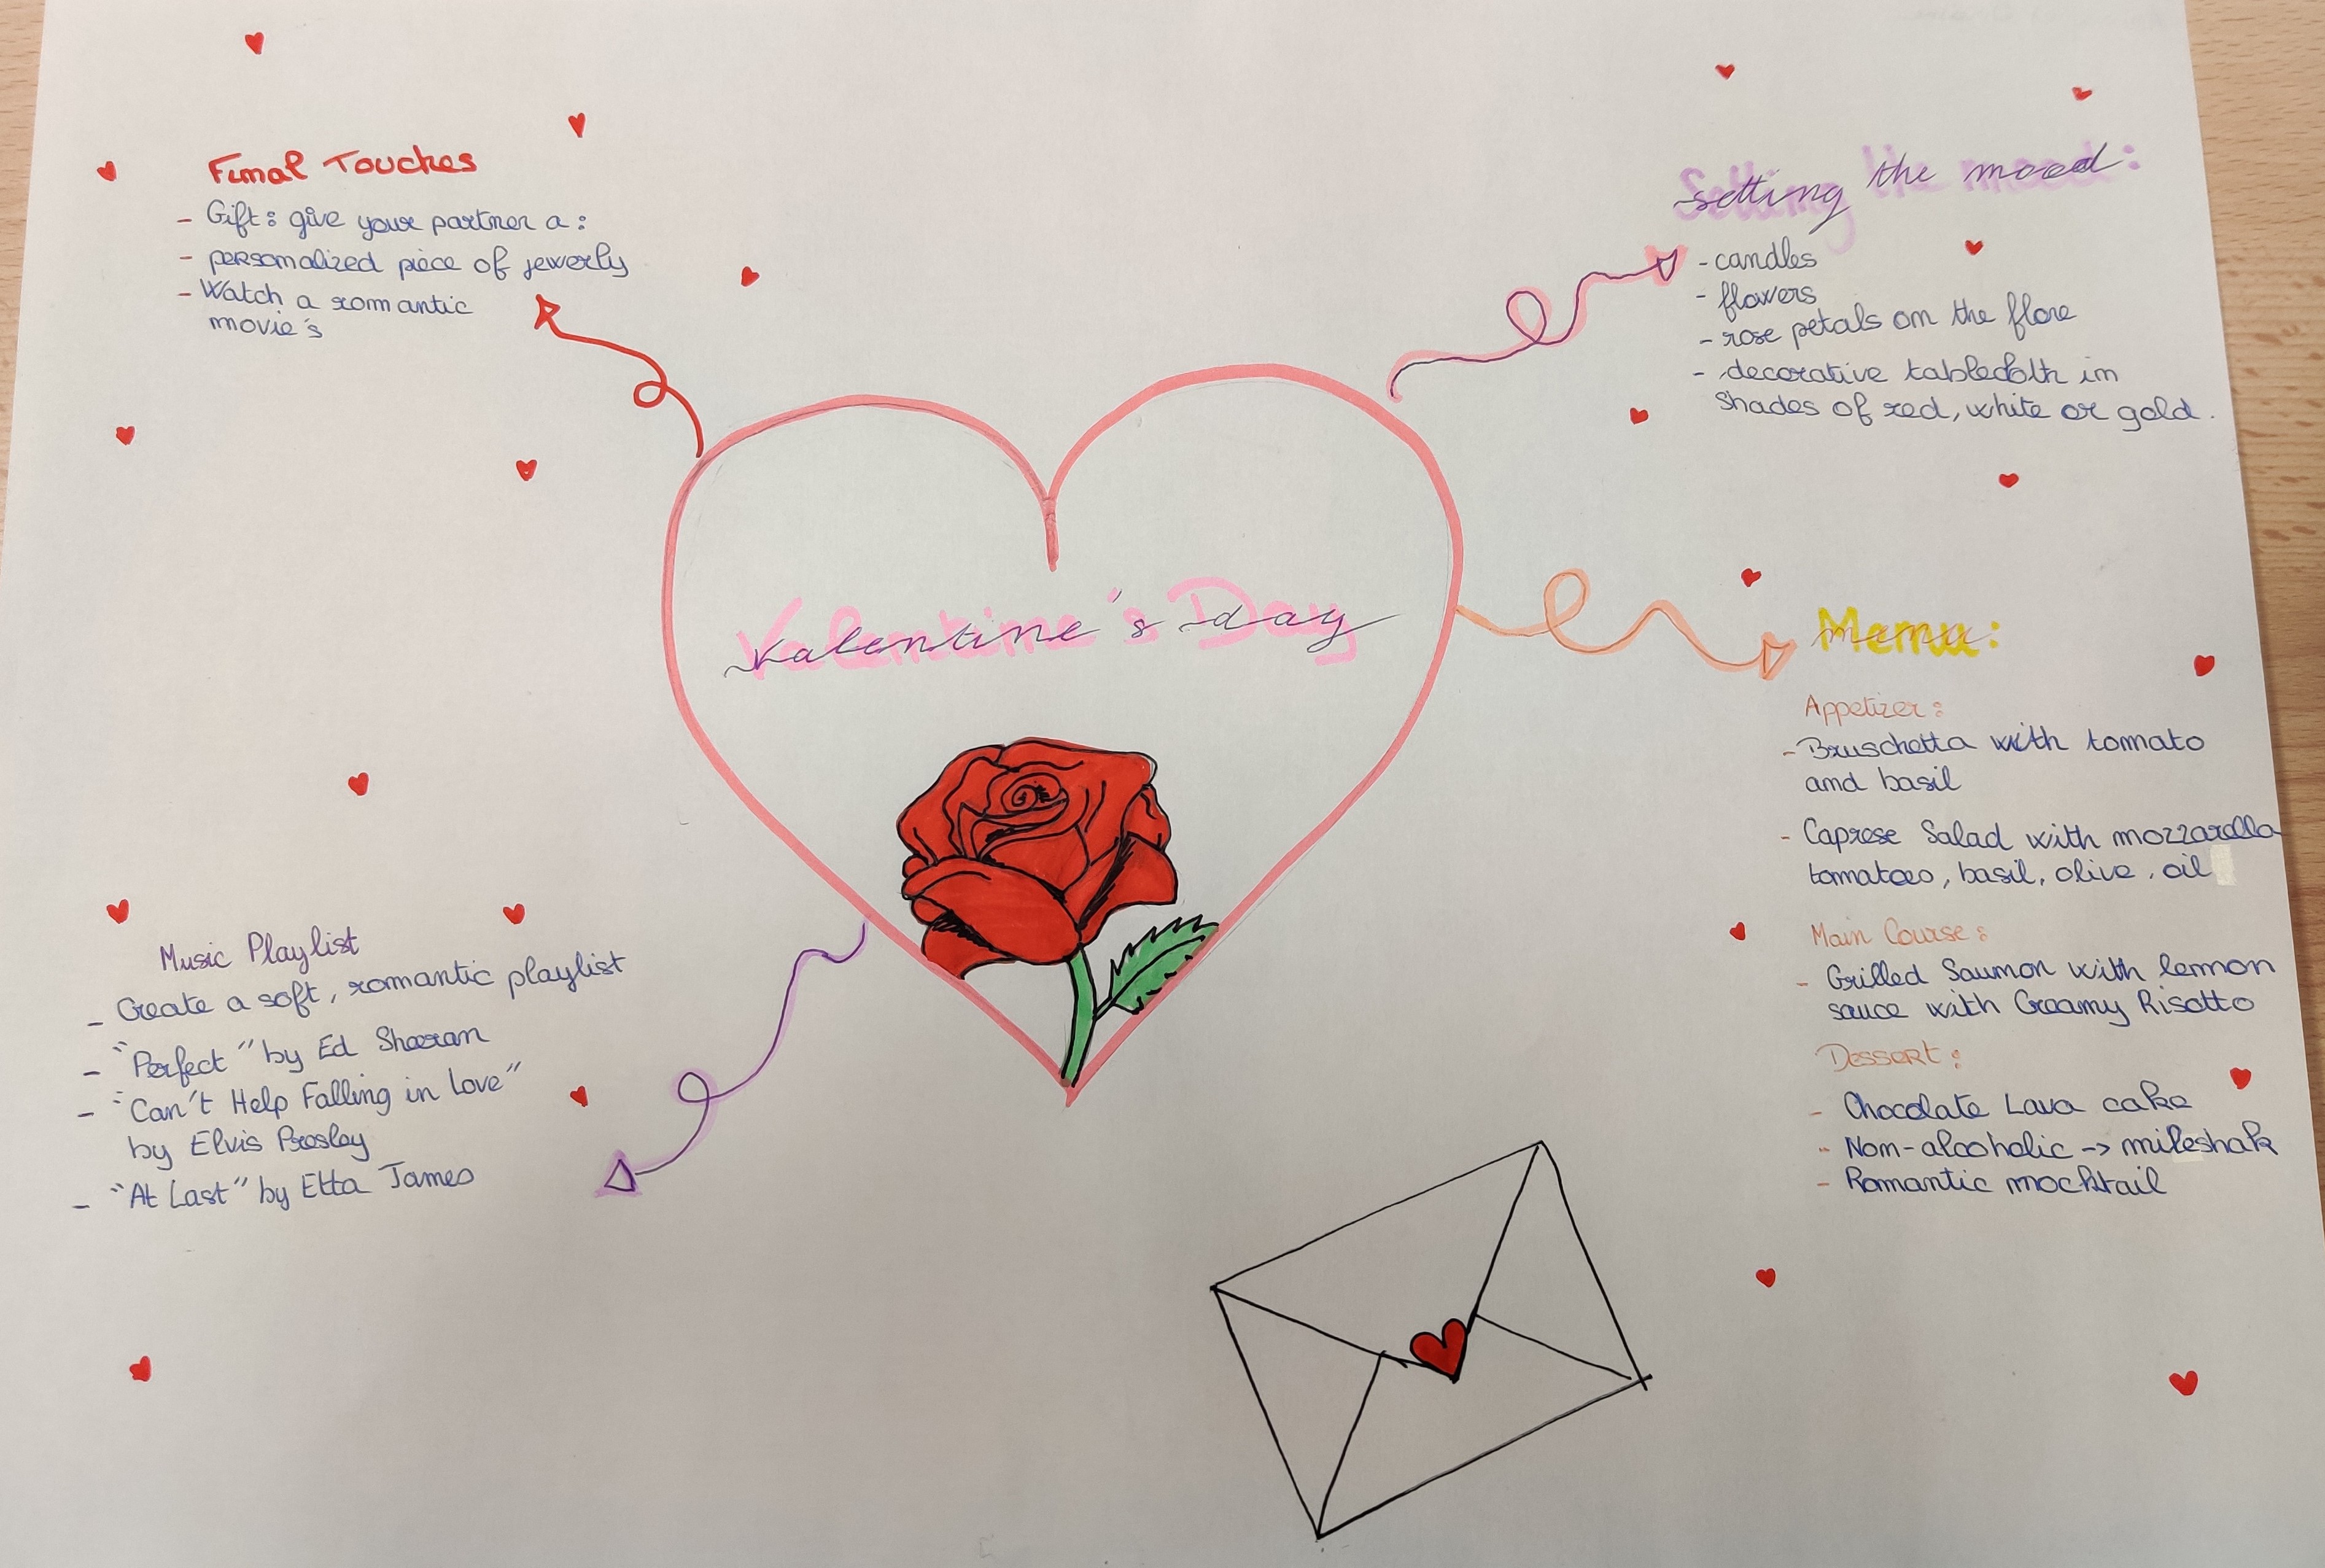 Final Touches
- Gift: give your partner a:
- personalized piece of jewerly
- Watch a romantic
movie's
Setting the mood:
- candles
- flowers
- rose petals on the flore
- decorative tablecloth in
shades of red, white or gold.
Valentine's Day
Menu:
Appetizer:
- Bruschetta with tomato
and basil
- Caprese Salad with mozzarella
tomatoes, basil, olive, oil
Main Course:
- Grilled Saumon with lemon
sauce with Creamy Risotto
Dessert:
- Chocolate Lava cake
- Non-alcoholic -> mileshak
- Romantic mocktail
Music Playlist
- Create a soft, romantic playlist
- "Perfect" by Ed Sheeran
- "Can't Help Falling in Love"
by Elvis Presley
- "At Last" by Etta James